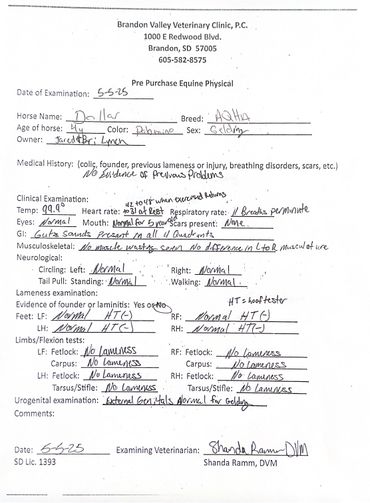 Brandon Valley Veterinary Clinic, P.C.
1000 E Redwood Blvd.
Brandon, SD 57005
605-582-8575
Pre Purchase Equine Physical
Date of Examination: 5-5-25
Horse Name: Dollar Breed: AQHA
Age of horse: 4y Color: Palomino Sex: Gelding
Owner: Jared & Bri
Medical History: (colic, founder, previous lameness or injury, breathing disorders, scars, etc.)
No Evidence of Previous Problems
Clinical Examination: 42 to 48 when exercised
Temp: 99.9° Heart rate: 31 at Rest Respiratory rate: 11 Breaths per minute
Eyes: Normal Mouth: Normal for 5 year old Scars present: None
GI: Guts sounds Present in all 4 Quadrants
Musculoskeletal: No muscle wasting seen No difference in L to R musculature
Neurological:
Circling: Left: Normal Right: Normal
Tail Pull: Standing: Normal Walking: Normal
Lameness examination:
Evidence of founder or laminitis: Yes or No HT = hoof tester
Feet: LF: Normal HT(-) RF: Normal HT(-)
LH: Normal HT(-) RH: Normal HT(-)
Limbs/Flexion tests:
LF: Fetlock: No Lameness RF: Fetlock: No Lameness
Carpus: No Lameness Carpus: No Lameness
LH: Fetlock: No Lameness RH: Fetlock: No Lameness
Tarsus/Stifle: No Lameness Tarsus/Stifle: No Lameness
Urogenital examination: External Genitals Normal for Gelding
Comments:
Date: 5-5-25 Examining Veterinarian: Shanda Ramm DVM
SD Lic. 1393 Shanda Ramm, DVM